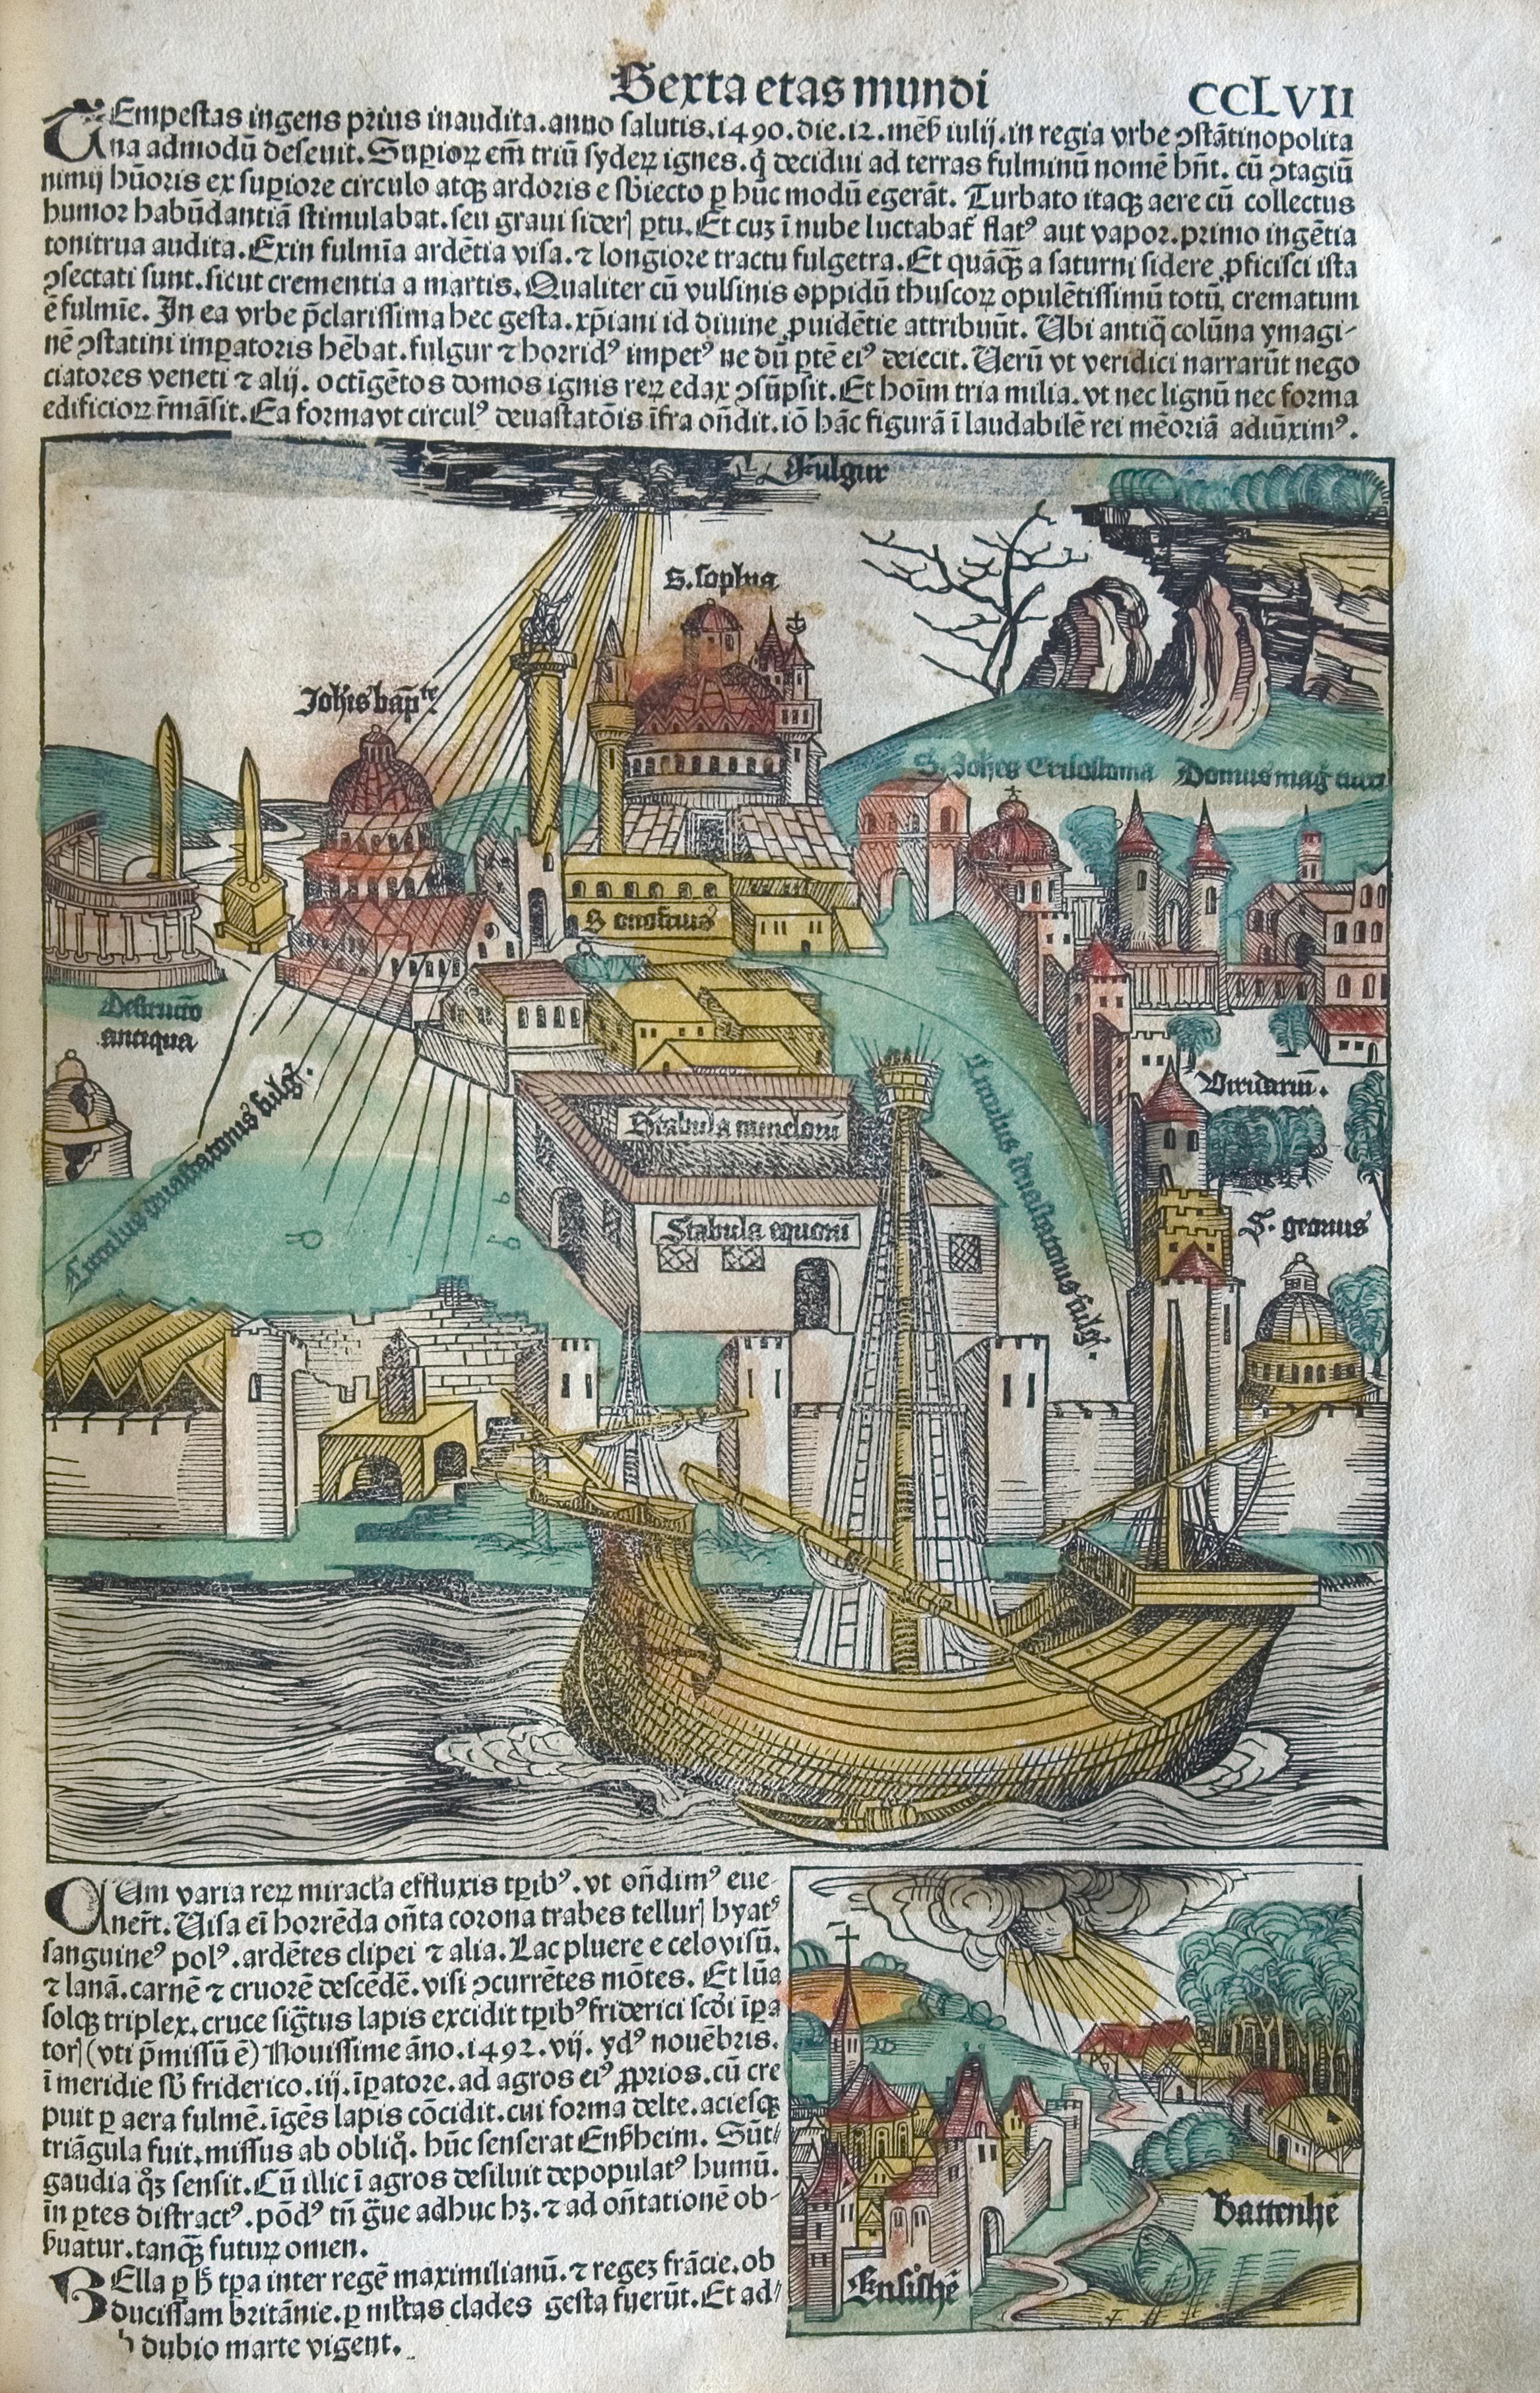 Sexta etas mundi
CCLVII
TEmpestas ingens prius inaudita.anno salutis.1490.die.12.mēs̄ iulij.in regia vrbe ↄstātinopolita
na admodū deseuit.Supioꝝ em̄ triū syderꝝ ignes.q̇ decidui ad terras fulminū nomē hn̄t. cū ↄtagiū
nimij hūoris ex supiore circulo atqꝫ ardoris e sb̄iecto p hūc modū egerāt. Turbato itaqꝫ aere cū collectus
humor habūdantiā stimulabat.seu graui siderꝭ ptu.Et cuꝫ ī nube luctabat̄ flatꝰ aut vapor.primo ingētia
tonitrua audita.Exin fulmīa ardētia visa.⁊ longiore tractu fulgetra.Et quāqꝫ a saturni sidere ꝓficisci ista
ↄsectati sunt.sicut crementia a martis. Qualiter cū vulsinis oppidū thuscoꝝ opulētissimū totū, crematum
ē fulmīe. In ea vrbe p̄clarissima hec gesta.xp̄iani id diuine ꝓuidētie attribuūt. Ubi antiq̄ colūna ymagi-
nē ↄstatini imꝑatoris hēbat.fulgur ⁊ horridꝰ impetꝰ ne dū ptē eiꝰ deiecit. Uerū vt veridici narrarūt nego
ciatores veneti ⁊ alij. octīgētos domos ignis rerꝝ edax ↄsūpsit.Et hoīm tria milia.vt nec lignū nec forma
edificioꝝ r̄māsit.Ea forma vt circulꝰ deuastatōis īfra on̄dit.iō hāc figurā ī laudabilē rei mēoriā adiūximꝰ.
Fulgur
S.sophia
Joh̄is bap̄te
S. Joh̄es Crisostoma
Domus mag̃
S onofrius
Destructio
antiqua
Viridariū.
Circulus deuastatonis fulg̃.
Circulus deuastatonis fulg̃.
Stabula mindorū
Stabula equorū
S. georius
CUm varia rerꝝ miracl̄a effluxis tp̄ibꝰ.vt on̄dimꝰ eue-
nert̄.Uisa ei horrēda on̄ta corona trabes tellurꝭ hyatꝰ
sanguineꝰ polꝰ.ardētes clipei ⁊ alia.Lac pluere e celo visū.
⁊ lanā.carnē ⁊ cruorē descēdē.visi ↄcurrētes mōtes. Et lūa
solqꝫ triplex.cruce sig̃tus lapis excidit tp̄ibꝰ friderici scd̄i īpa
torꝭ (vti p̄missū ē) Nouissime āno.1492.vij. ydꝰ nouēbris.
ī meridie sb̄ friderico.iij.īpatore.ad agros eiꝰ ꝓprios.cū cre
puit p aera fulmē.īgēs lapis cōcidit.cui forma delte.aciesqꝫ
triāgula fuit.missus ab obliq̊. hūc senserat Ensh̄eim. Sūt-
gaudia q̊ꝫ sensit.Cū illic ī agros desiluit depopulatꝰ humū.
in ptes distractꝰ.pōdꝰ tn̄ g̃ue adhuc hꝫ.⁊ ad on̄tationē ob-
suatur.tanqꝫ futurꝝ omen.
BElla p h̄ tp̄a inter regē maximilianū.⁊ regeꝫ frācie.ob
ducissam britānie.p ml̄tas clades gesta fuerūt.Et ad-
dubio marte vigent.
Battenhē
Ensishē